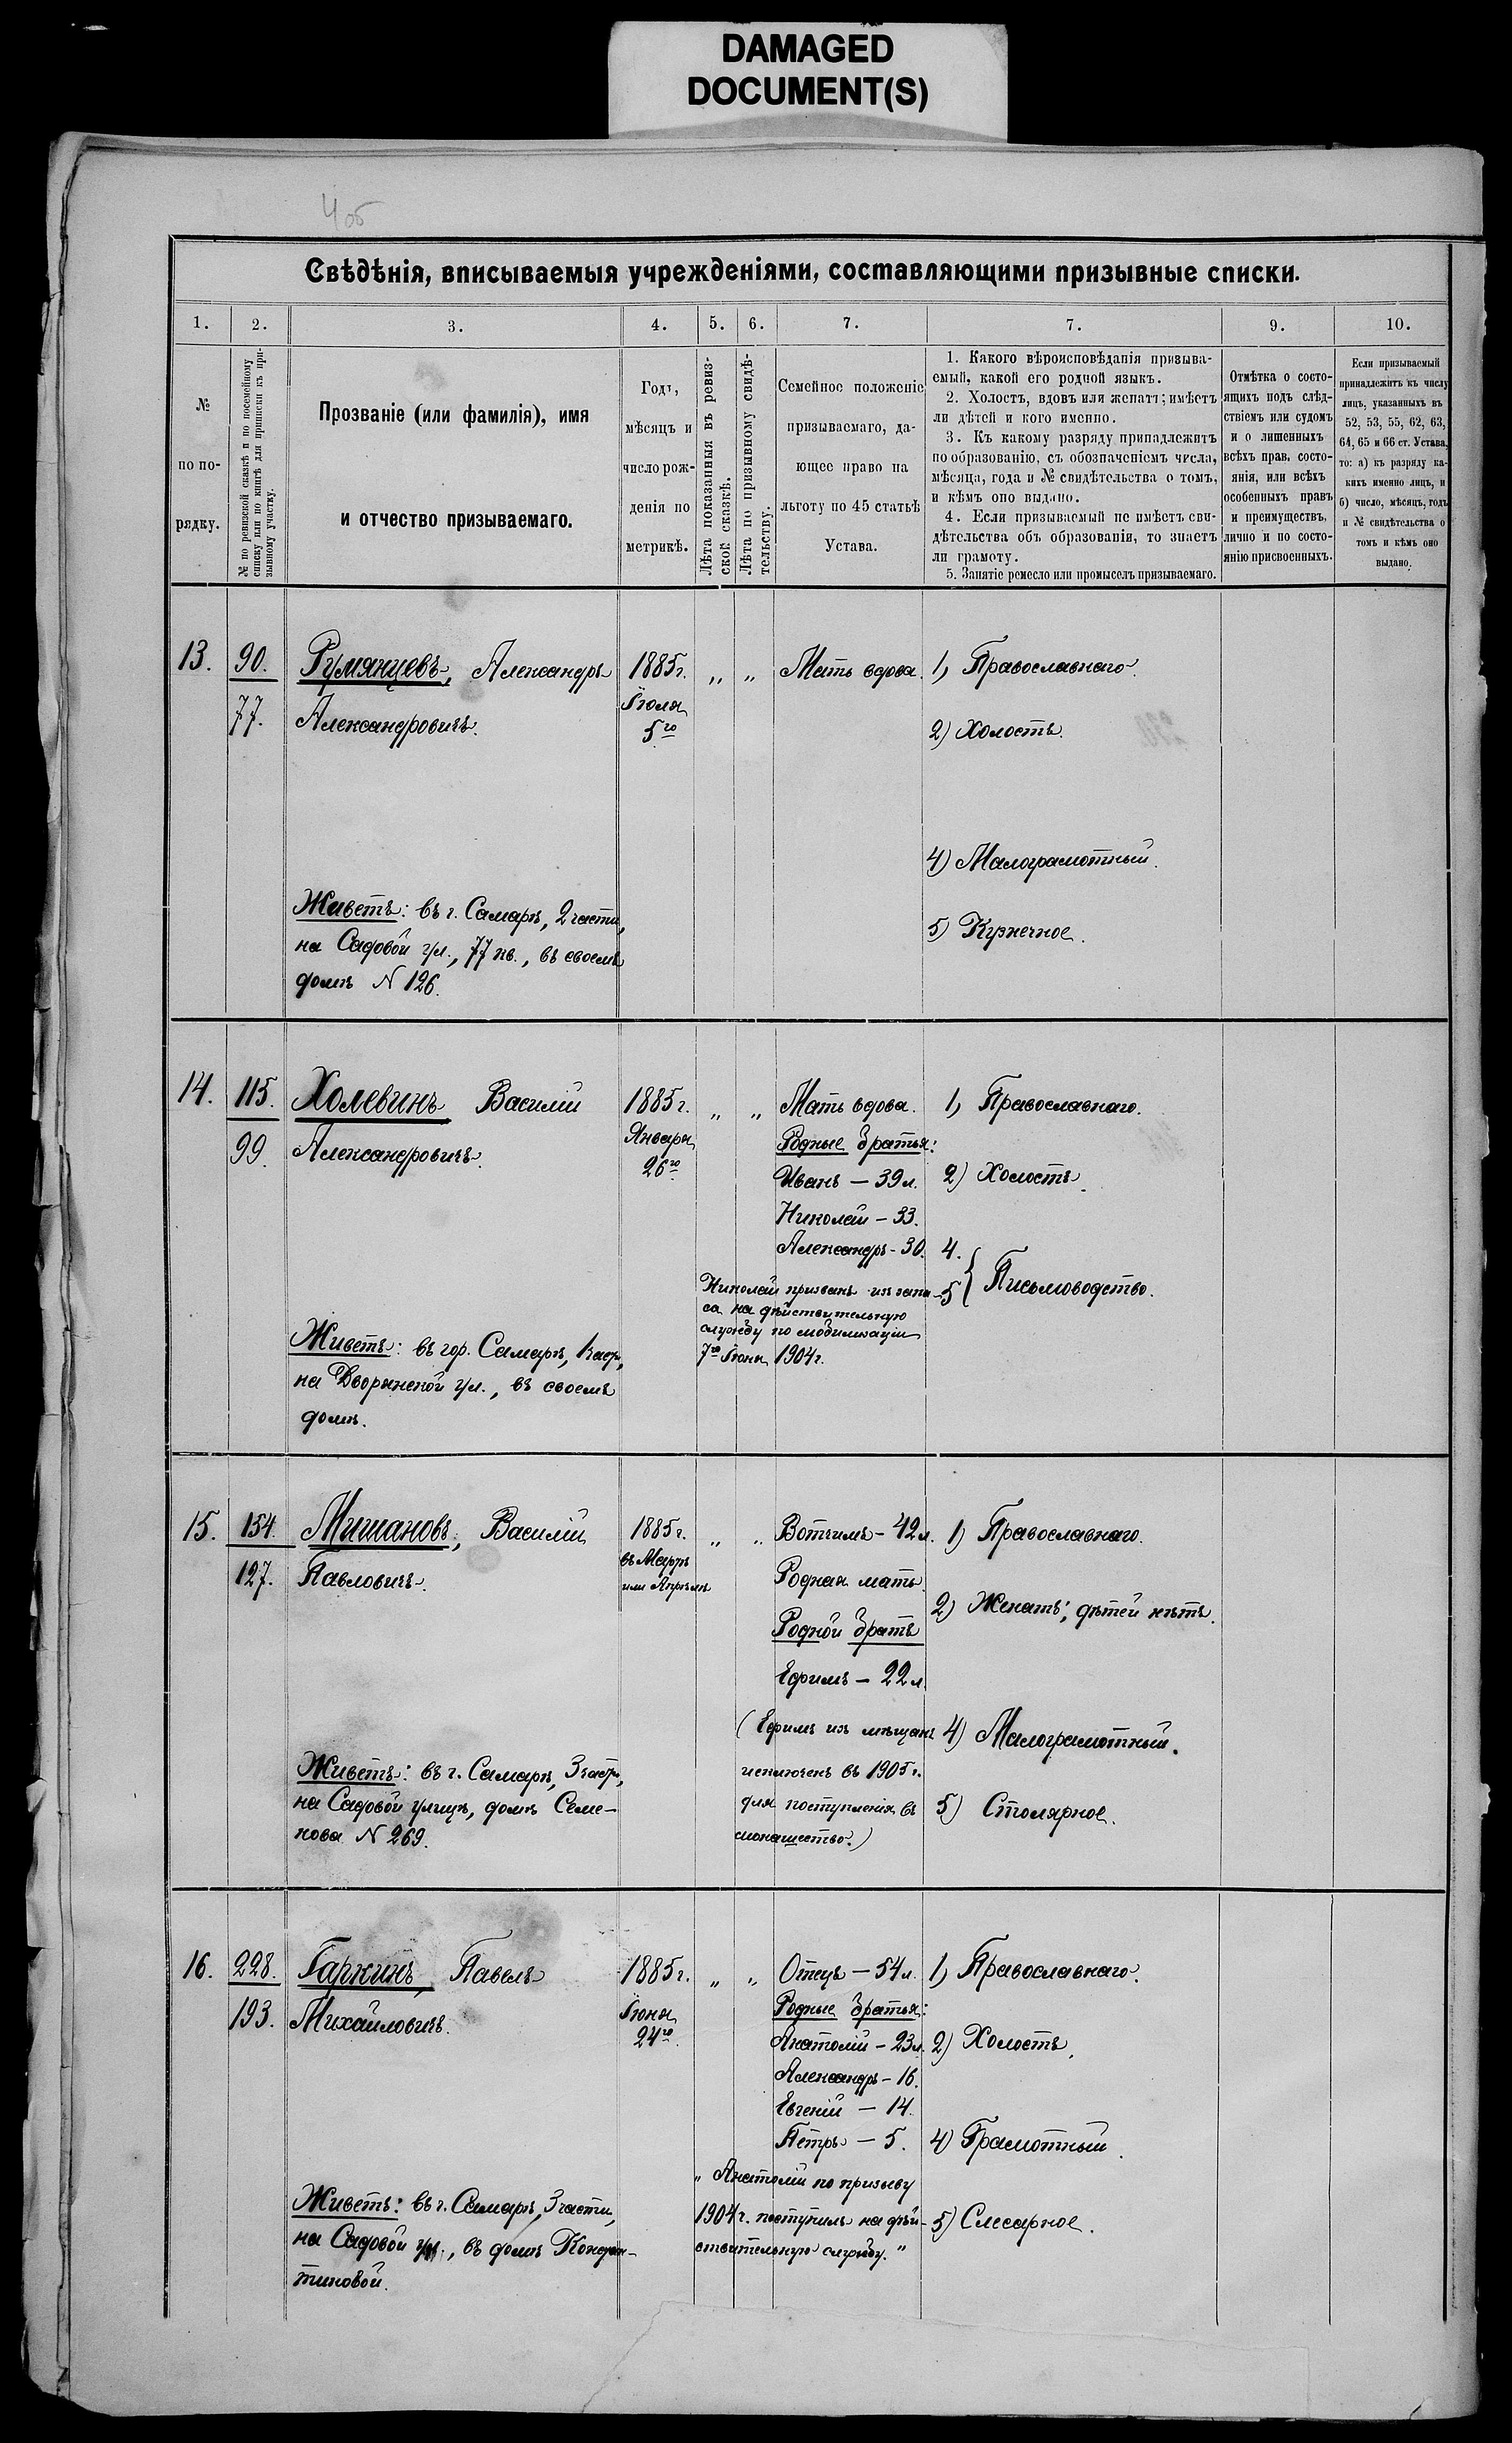 DAMAGED
DOCUMENT(S)
4об
Свѣдѣнія, вписываемыя учрежденіями, составляющими призывные списки.
1. 2. 3. 4. 5. 6. 7. 7. 9. 10.
№
по по-
рядку.
№ по ревизской сказкѣ и по посемейному
списку или по книгѣ для приписки къ при-
зывному участку.
Прозваніе (или фамилія), имя
и отчество призываемаго.
Годъ,
мѣсяцъ и
число рож-
денія по
метрикѣ.
Лѣта показанныя въ ревиз-
ской сказкѣ.
Лѣта по призывному свидѣ-
тельству.
Семейное положеніе
призываемаго, да-
ющее право на
льготу по 45 статьѣ
Устава.
1. Какого вѣроисповѣданія призыва-
емый, какой его родной языкъ.
2. Холостъ, вдовъ или женатъ; имѣетъ
ли дѣтей и кого именно.
3. Къ какому разряду принадлежитъ
по образованію, съ обозначеніемъ числа,
мѣсяца, года и № свидѣтельства о томъ,
и кѣмъ оно выдано.
4. Если призываемый не имѣетъ сви-
дѣтельства объ образованіи, то знаетъ
ли грамоту.
5. Занятіе ремесло или промыселъ призываемаго.
Отмѣтка о состо-
ящихъ подъ слѣд-
ствіемъ или судомъ
и о лишенныхъ
всѣхъ прав, состо-
янія, или всѣхъ
особенныхъ правъ
и преимуществъ,
лично и по состо-
янію присвоенныхъ.
Если призываемый
принадлежитъ къ числу
лицъ, указанныхъ въ
52, 53, 55, 62, 63,
64, 65 и 66 ст. Устава,
то: а) къ разряду ка-
кихъ именно лицъ, и
б) число, мѣсяцъ, годъ
и № свидѣтельства о
томъ и кѣмъ оно
выдано.
13. 90. Румянцевъ, Александръ 1885г. „ „ Мать вдова. 1) Православнаго.
77. Александровичъ. Іюля
5го
2) Холостъ.
4) Малограмотный.
Живетъ: въ г. Самарѣ, 2 части,
на Садовой ул., 77 кв., въ своемъ
домѣ N 126.
5) Кузнечное.
14. 115. Холевинъ Василій 1885г. „ „ Мать вдова. 1) Православнаго.
99. Александровичъ. Января
26го
Родные братья:
Иванъ - 39 л.
Николай - 33.
Александръ - 30.
2) Холостъ.
4.
5 { Письмоводство.
Николай призванъ изъ запа-
са на дѣйствительную
службу по мобилизаціи
7го Іюня 1904г.
Живетъ: въ гор. Самарѣ, 1 част,
на Дворянской ул., въ своемъ
домѣ.
15. 154. Мишановъ, Василій 1885г. „ „ Вотчимъ - 42 л. 1) Православнаго.
127. Павловичъ. въ Мартѣ
или Апрѣлѣ
Родная мать.
Родной братъ
Ефимъ - 22 л.
2) Женатъ; дѣтей нѣтъ.
(Ефимъ изъ мѣщанъ
исключенъ въ 1905 г.
для поступленія въ
монашество.)
4) Малограмотный.
Живетъ: въ г. Самарѣ, 3 част,
на Садовой улицѣ, домъ Семе-
нова N 269.
5) Столярное.
16. 228. Гаркинъ, Павелъ 1885г. „ „ Отецъ - 54 л. 1) Православнаго.
193. Михайловичъ. Іюня
24го
Родные братья:
Анатолій - 23 л.
Александръ - 16.
Евгеній - 14.
Петръ - 5.
2) Холостъ.
4) Грамотный.
„Анатолій по призыву
1904г. поступилъ на дѣй-
ствительную службу."
5) Слесарное.
Живетъ: въ г. Самарѣ, 3 части,
на Садовой ул., въ домѣ Констан-
тиновой.